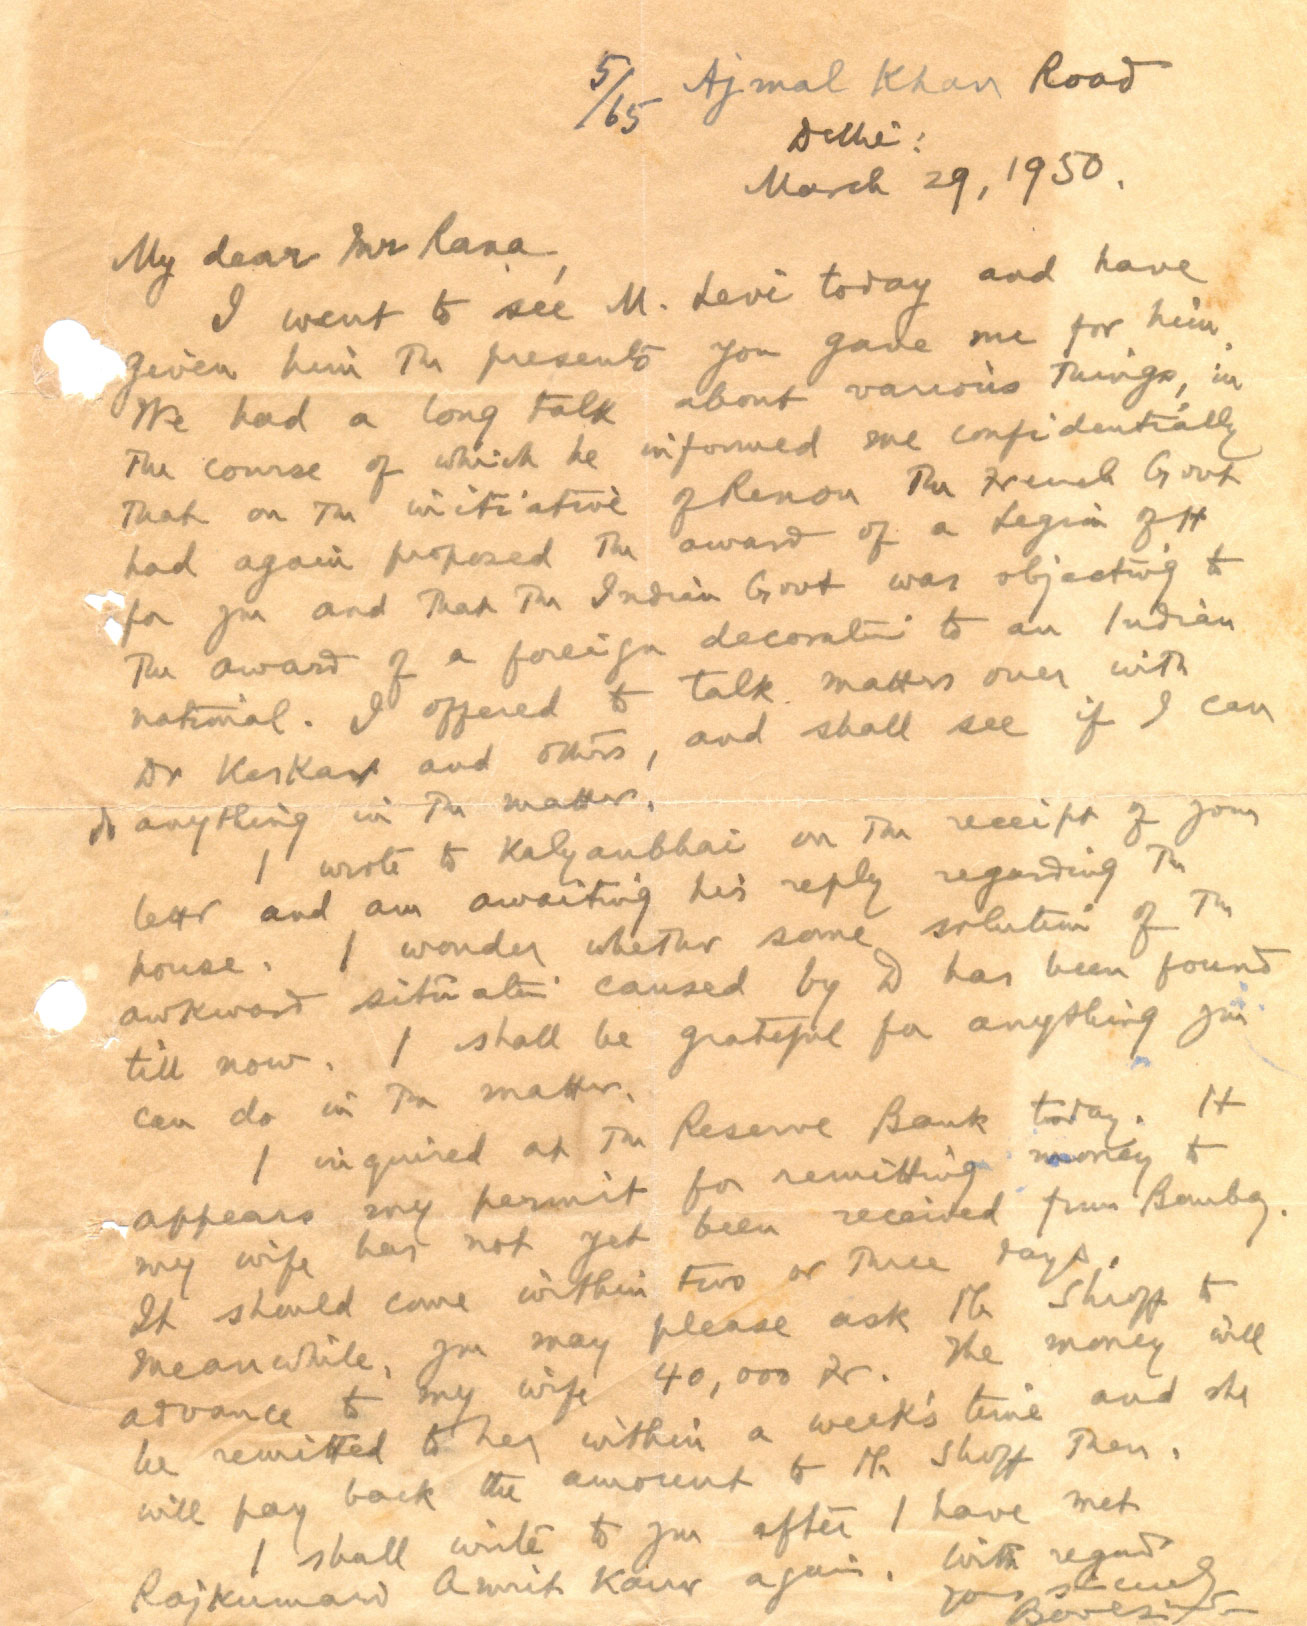 5/65 Ajmal Khan Road
Delhi:
March 29, 1950.
My dear Mr Rana,
I went to see M. Levi today and have
given him the presents you gave me for him.
We had a long talk about various things, in
the course of which he informed me confidentially
that on the initiative of Renou the French Govt
had again proposed the award of a Legion of H
for you and that the Indian Govt was objecting to
the award of a foreign decoration to an Indian
national. I offered to talk matters over with
Dr Keskar and others, and shall see if I can
do anything in the matter.
I wrote to Kalyanbhai on the receipt of your
letter and am awaiting his reply regarding the
house. I wonder whether some solution of the
awkward situation caused by D has been found
till now. I shall be grateful for anything you
can do in the matter.
I inquired at the Reserve Bank today. It
appears my permit for remitting money to
my wife has not yet been received from Bombay.
It should come within two or three days.
Meanwhile, you may please ask Mr Shroff to
advance to my wife 40,000 Fr. The money will
be remitted to her within a week's time and she
will pay back the amount to Mr Shroff then.
I shall write to you after I have met
Rajkumari Amrit Kaur again. With regard
Yours sincerely